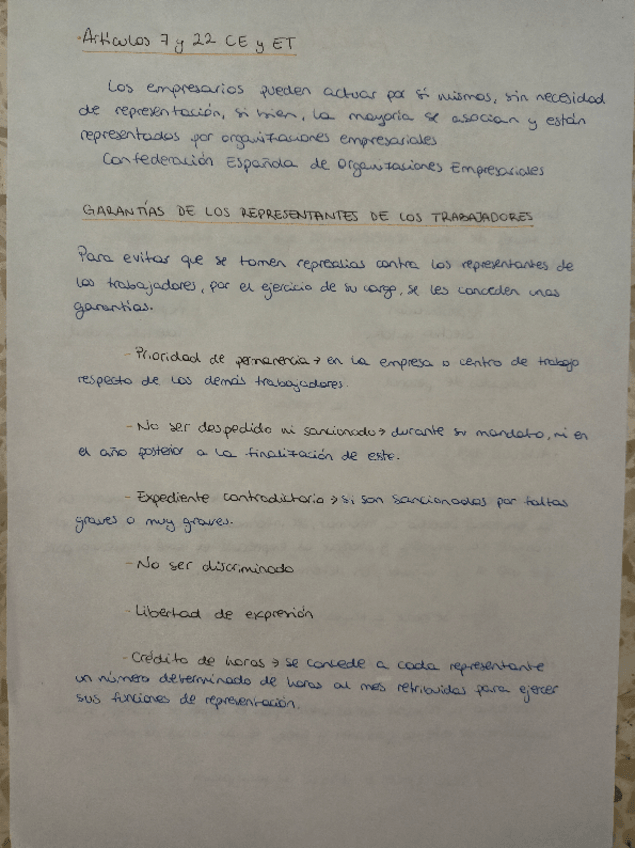 ·Artículos 7 y 22 CE y ET
Los empresarios pueden actuar por sí mismos, sin necesidad
de representación, si bien, la mayoría se asocian y están
representados por organizaciones empresariales
Confederación Española de Organizaciones Empresariales
GARANTÍAS DE LOS REPRESENTANTES DE LOS TRABAJADORES
Para evitar que se tomen represalias contra los representantes de
los trabajadores, por el ejercicio de su cargo, se les conceden unas
garantías.
- Prioridad de permanencia → en la empresa o centro de trabajo
respecto de los demás trabajadores.
- No ser despedido ni sancionado → durante su mandato, ni en
el año posterior a la finalización de este.
- Expediente contradictorio → si son sancionados por faltas
graves o muy graves.
- No ser discriminado
- Libertad de expresión
- Crédito de horas → se concede a cada representante
un número determinado de horas al mes retribuidas para ejercer
sus funciones de representación.